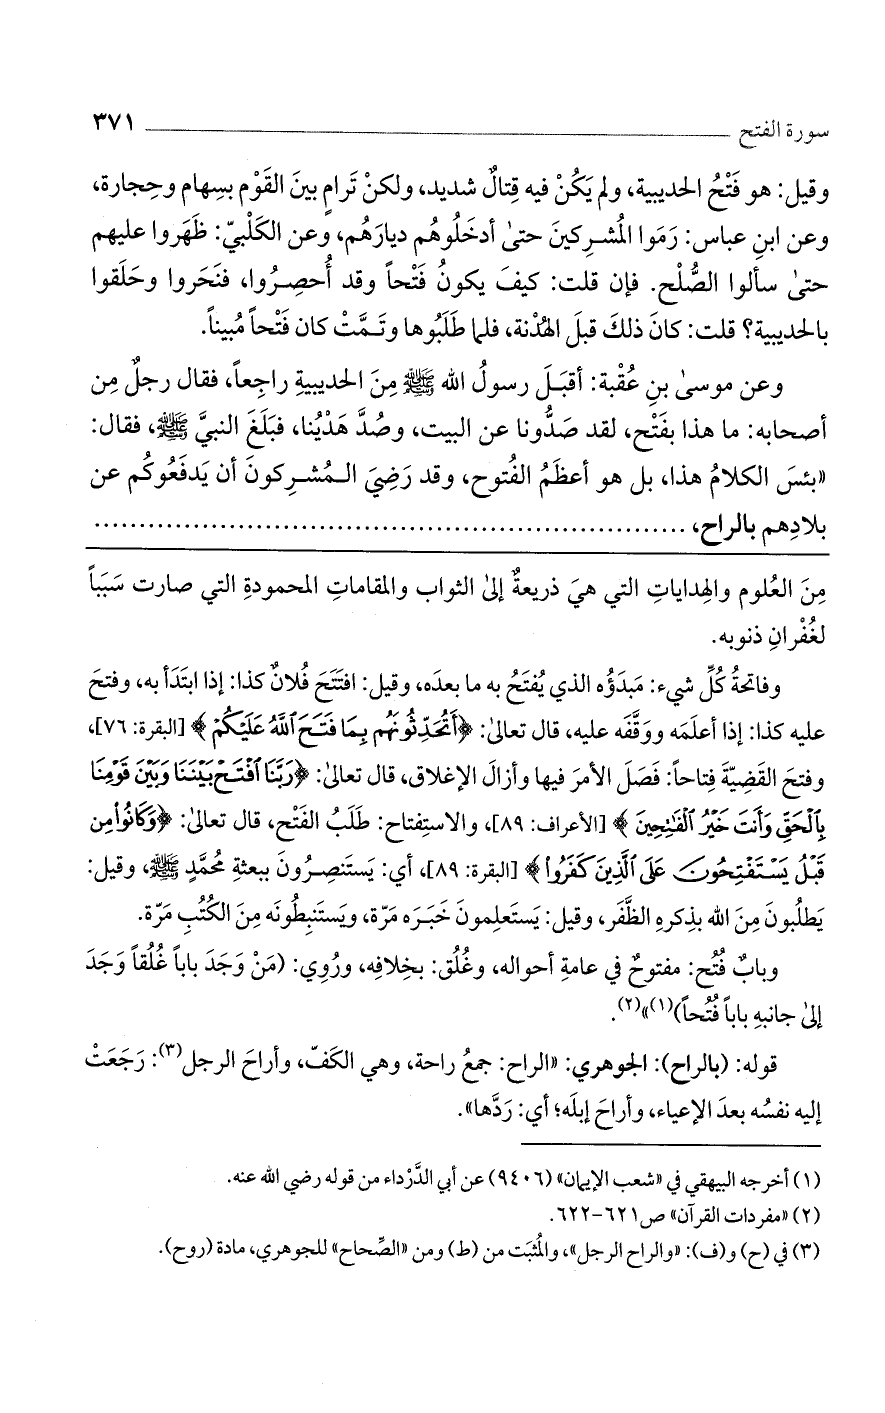 سورة الفتح ٣٧١
وقيل: هو فَتْحُ الحديبية، ولم يَكُنْ فيه قِتالٌ شديد، ولكنْ تَرامٍ بينَ القَوْم بسِهام وحِجارة،
وعن ابنِ عباس: رَمَوا المُشرِكينَ حتىٰ أدخَلُوهُم ديارَهُم، وعن الكَلْبيّ: ظَهَروا عليهم
حتىٰ سألوا الصُّلْح. فإن قلت: كيفَ يكونُ فَتْحاً وقد أُحصِرُوا، فنَحَروا وحَلَقوا
بالحديبية؟ قلت: كانَ ذلكَ قبلَ الهُدْنة، فلما طَلَبُوها وتَـمَّتْ كان فَتْحاً مُبيناً.
وعن موسىٰ بنِ عُقْبة: أقبَلَ رسولُ الله ﷺ مِنَ الحديبيةِ راجِعاً، فقال رجلٌ مِن
أصحابه: ما هذا بفَتْح، لقد صَدُّونا عن البيت، وصُدَّ هَدْيُنا، فبَلَغَ النبيَّ ﷺ، فقال:
«بئسَ الكلامُ هذا، بل هو أعظَمُ الفُتوح، وقد رَضِيَ الـمُشرِكونَ أن يَدفَعُوكُم عن
بلادِهم بالراح، ................................................................
مِنَ العُلوم والهِداياتِ التي هيَ ذريعةٌ إلىٰ الثواب والمقاماتِ المحمودةِ التي صارت سَبَباً
لغُفْرانِ ذنوبه.
وفاتحةُ كُلِّ شيء: مَبدَؤُه الذي يُفتَحُ به ما بعدَه، وقيل: افتَتَحَ فُلانٌ كذا: إذا ابتَدَأ به، وفتحَ
عليه كذا: إذا أعلَمَه ووَقَّفَه عليه، قال تعالىٰ: ﴿أَتُحَدِّثُونَهُم بِمَا فَتَحَ ٱللَّهُ عَلَيْكُمْ﴾ [البقرة: ٧٦]،
وفتحَ القَضِيّةَ فِتاحاً: فَصَلَ الأمرَ فيها وأزالَ الإغلاق، قال تعالىٰ: ﴿رَبَّنَا ٱفْتَحْ بَيْنَنَا وَبَيْنَ قَوْمِنَا
بِٱلْحَقِّ وَأَنتَ خَيْرُ ٱلْفَٰتِحِينَ﴾ [الأعراف: ٨٩]، والاستِفتاح: طَلَبُ الفَتْح، قال تعالىٰ: ﴿وَكَانُوا۟ مِن
قَبْلُ يَسْتَفْتِحُونَ عَلَى ٱلَّذِينَ كَفَرُوا۟﴾ [البقرة: ٨٩]، أي: يَستَنصِرُونَ ببعثةِ مُحمَّدٍ ﷺ، وقيل:
يَطلُبونَ مِنَ الله بذِكرِه الظَّفَر، وقيل: يَستَعلِمونَ خَبَرَه مَرّة، ويَستَنبِطُونَه مِنَ الكُتُبِ مَرّة.
وبابٌ فُتُح: مفتوحٌ في عامةِ أحواله، وغُلُق: بخِلافِه، ورُوِي: (مَنْ وَجَدَ باباً غُلُقاً وَجَدَ
إلىٰ جانبهِ باباً فُتُحاً)(١)»(٢).
قوله: (بالراح): الجوهري: «الراح: جمعُ راحة، وهي الكَفّ، وأراحَ الرجل(٣): رَجَعَتْ
إليه نفسُه بعدَ الإعياء، وأراحَ إبلَه؛ أي: رَدَّها».
(١) أخرجه البيهقي في «شعب الإيمان» (٩٤٠٦) عن أبي الدَّرْداء من قوله رضي الله عنه.
(٢) «مفردات القرآن» ص٦٢١-٦٢٢.
(٣) في (ح) و(ف): «والراح الرجل»، والمُثبَت من (ط) ومن «الصِّحاح» للجوهري، مادة (روح).